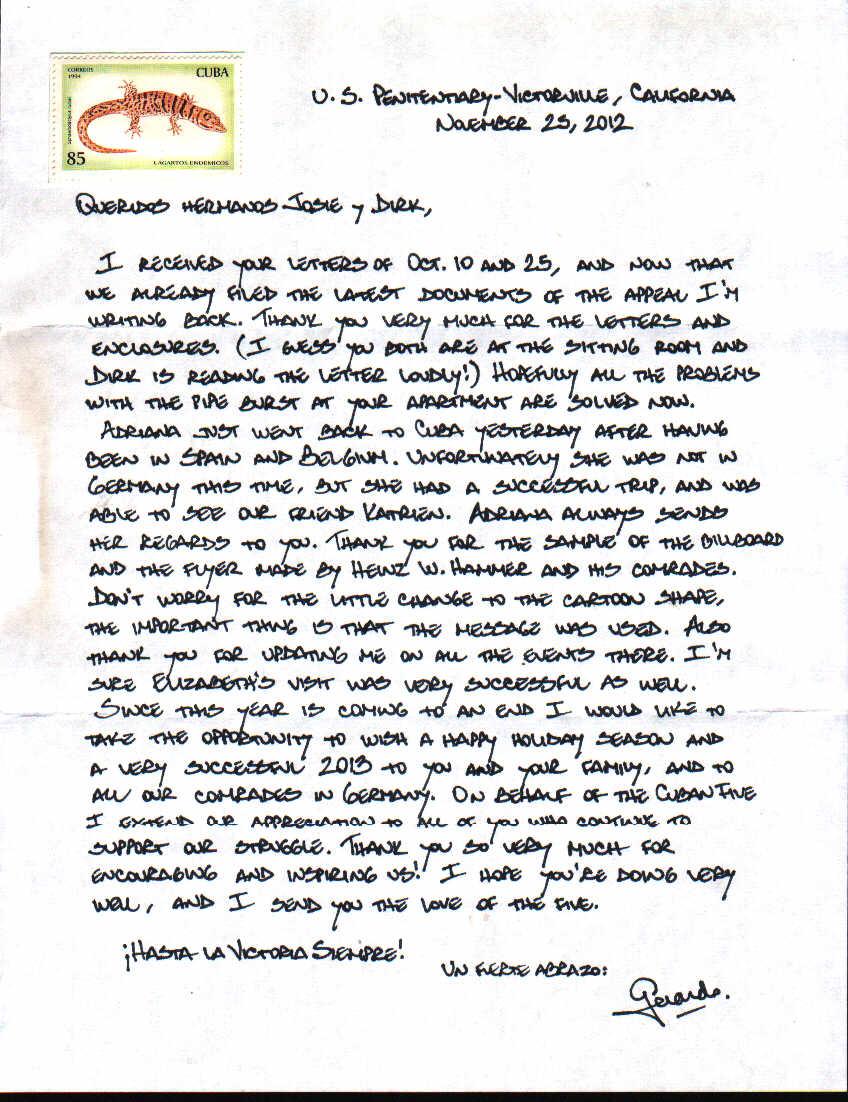 CORREOS
1994
CUBA
85
LAGARTOS ENDEMICOS
U. S. PENITENTIARY-VICTORVILLE, CALIFORNIA
NOVEMBER 25, 2012
QUERIDOS HERMANOS JOSIE y DIRK,
I RECEIVED YOUR LETTERS OF OCT. 10 AND 25, AND NOW THAT
WE ALREADY FILED THE LATEST DOCUMENTS OF THE APPEAL I'M
WRITING BACK. THANK YOU VERY MUCH FOR THE LETTERS AND
ENCLOSURES. (I GUESS YOU BOTH ARE AT THE SITTING ROOM AND
DIRK IS READING THE LETTER LOUDLY!) HOPEFULLY ALL THE PROBLEMS
WITH THE PIPE BURST AT YOUR APARTMENT ARE SOLVED NOW.
ADRIANA JUST WENT BACK TO CUBA YESTERDAY AFTER HAVING
BEEN IN SPAIN AND BELGIUM. UNFORTUNATELY SHE WAS NOT IN
GERMANY THIS TIME, BUT SHE HAD A SUCCESSFUL TRIP, AND WAS
ABLE TO SEE OUR FRIEND KATRIEN. ADRIANA ALWAYS SENDS
HER REGARDS TO YOU. THANK YOU FOR THE SAMPLE OF THE BILLBOARD
AND THE FLYER MADE BY HEINZ W. HAMMER AND HIS COMRADES.
DON'T WORRY FOR THE LITTLE CHANGE TO THE CARTOON SHAPE,
THE IMPORTANT THING IS THAT THE MESSAGE WAS USED. ALSO
THANK YOU FOR UPDATING ME ON ALL THE EVENTS THERE. I'M
SURE ELIZABETH'S VISIT WAS VERY SUCCESSFUL AS WELL.
SINCE THIS YEAR IS COMING TO AN END I WOULD LIKE TO
TAKE THE OPPORTUNITY TO WISH A HAPPY HOLIDAY SEASON AND
A VERY SUCCESSFUL 2013 TO YOU AND YOUR FAMILY, AND TO
ALL OUR COMRADES IN GERMANY. ON BEHALF OF THE CUBAN FIVE
I EXTEND OUR APPRECIATION TO ALL OF YOU WHO CONTINUE TO
SUPPORT OUR STRUGGLE. THANK YOU SO VERY MUCH FOR
ENCOURAGING AND INSPIRING US! I HOPE YOU'RE DOING VERY
WELL, AND I SEND YOU THE LOVE OF THE FIVE.
¡HASTA LA VICTORIA SIEMPRE!
UN FUERTE ABRAZO:
Gerardo.